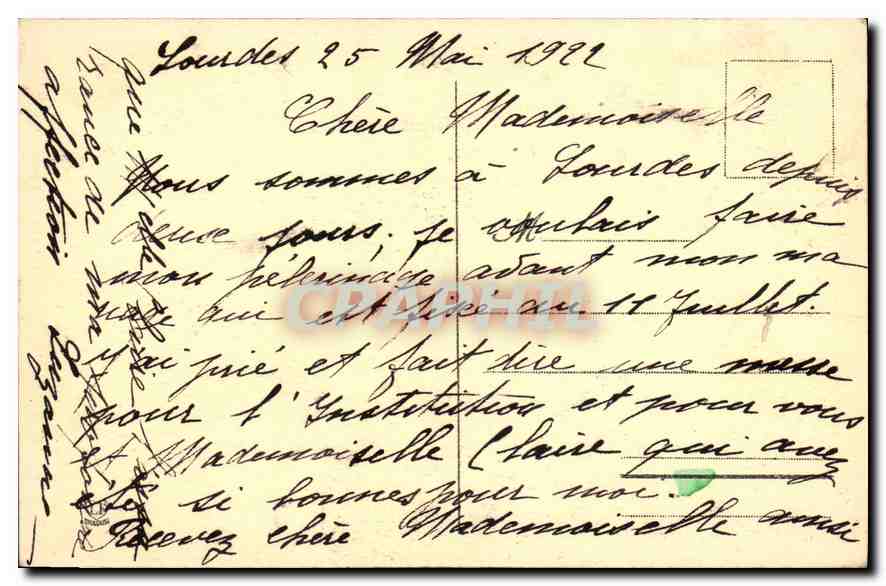 Lourdes 25 Mai 1922
Chère Mademoiselle
Nous sommes à Lourdes depuis
deux jours, je voulais faire
mon pélerinage avant mon ma
riage qui est fixé au 11 Juillet.
J'ai prié et fait dire une messe
pour l'Institution et pour vous
et Mademoiselle Claire qui avez
été si bonnes pour moi.
Recevez chère Mademoiselle ainsi
que Mlle Claire
de ma
affection Suzanne
CPAPHIL